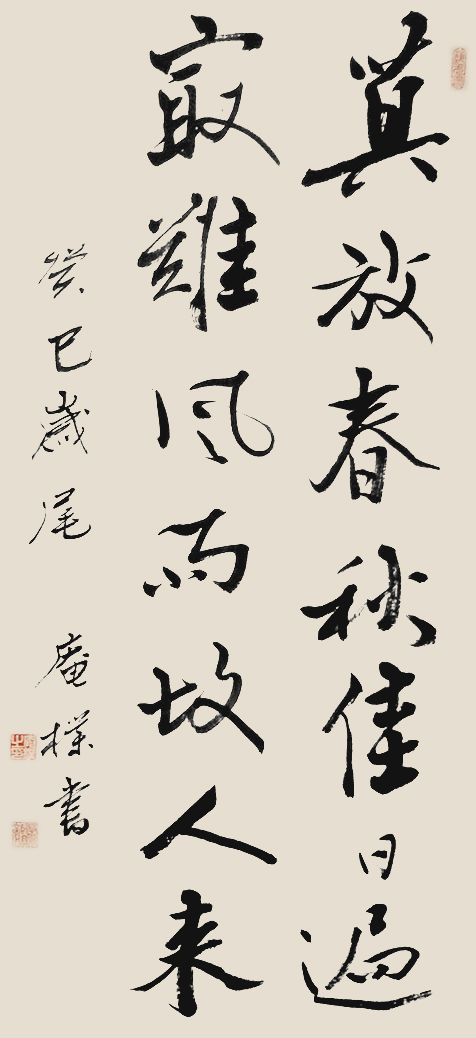 莫放春秋佳日過
最難風雨故人来
癸巳歲尾 庵樸書